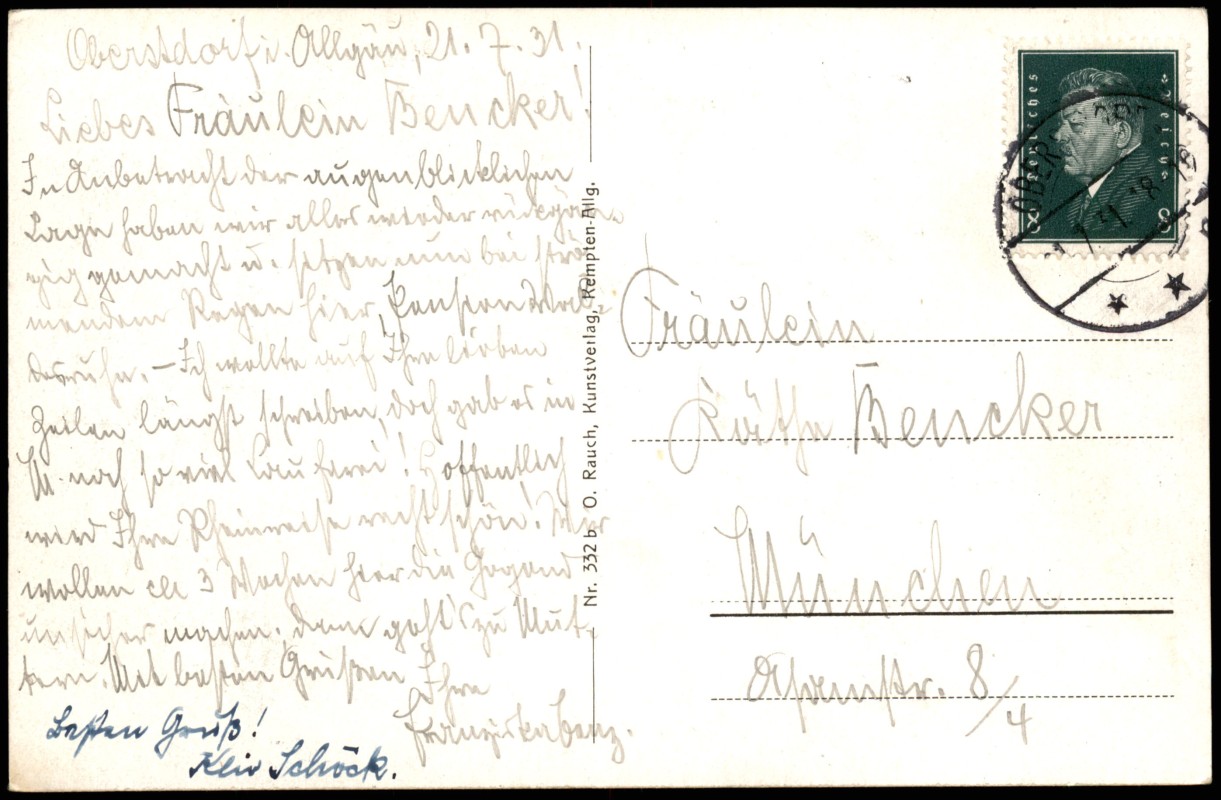 Oberstdorf i. Allgäu, 21. 7. 31.
Liebes Fräulein Bencker!
In Anbetracht der augenblicklichen
Lage haben wir alles wieder rückgän-
gig gemacht u. sitzen nun bei strö-
mendem Regen hier, Pension
. – Ich wollte auf Ihre lieben
Zeilen längst schreiben, doch gab es in
M. noch so viel Lauferei! Hoffentlich
wird Ihre Rheinreise recht schön! Wir
wollen ca 3 Wochen hier die Gegend
unsicher machen, dann geht's zu Mut-
tern. Mit besten Grüßen Ihre
Franziska Benz.
Besten Gruß!
Schöck.
Nr. 332 b O. Rauch, Kunstverlag, Kempten-Allg.
Deutsches Reich
8 8
Fräulein
Käthe Bencker
München
Asamstr. 8/4